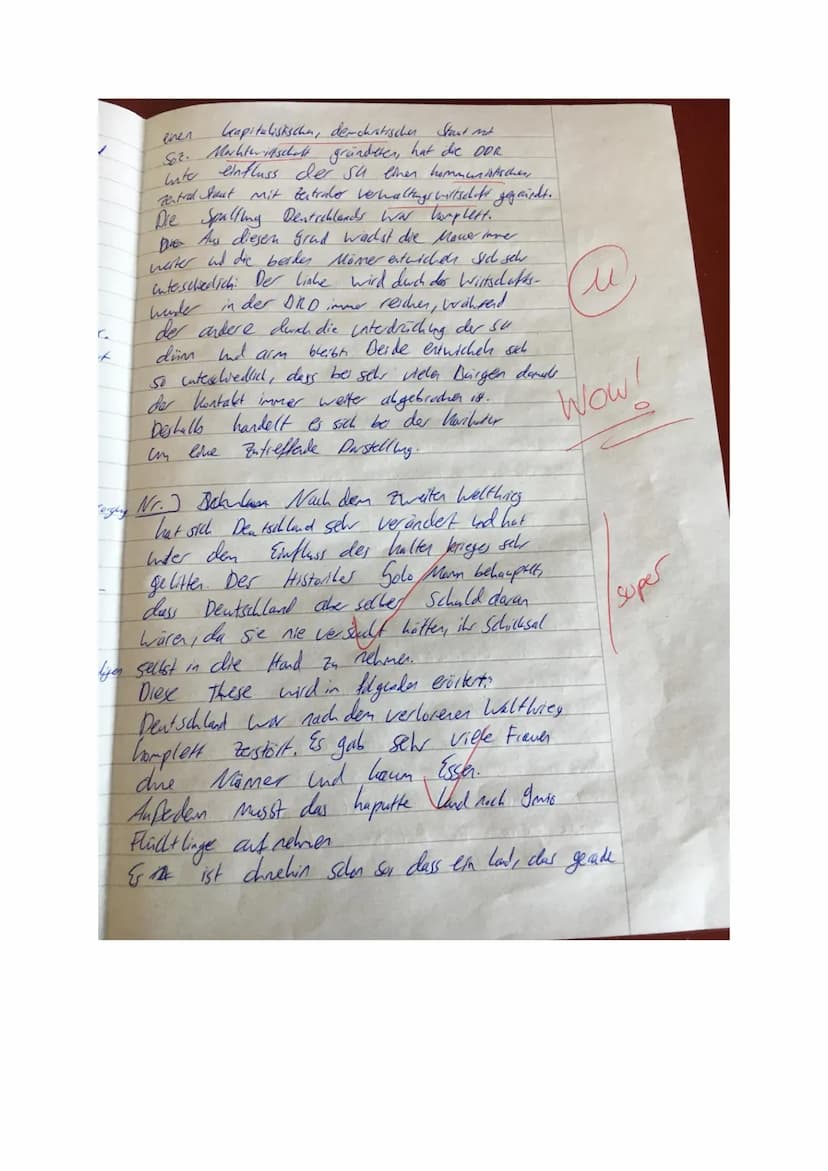 einen kapitalistischen, demokratischen Staat mit
Soz. Marktwirtschaft gründeten, hat die DDR
unter einfluss der SU einen kommunistischen
Zentral Staat mit Zentraler verwaltungswirtschaft gegründt.
Die Spaltung Deutschlands war komplett.
Aus diesem Grund wächst die Mauer immer
weiter und die beiden Männer entwickeln sich sehr
unterschiedlich: Der linke wird durch das Wirtschafts-
wunder in der BRD immer reicher, während
der andere durch die unterdrückung der SU
dünn und arm bleibt. Beide entwickeln sich
so unterschiedlich, dass bei sehr vielen Bürgen damals
der Kontakt immer weiter abgebrochen ist.
Deshalb handelt es sich bei der Karikatur
um eine Zutreffende Darstellung.
11
Wow!
Nr. 3 Nach dem zweiten Weltkrieg
hat sich Deutschland sehr verändert und hat
unter dem Einfluss des kalten krieges sehr
gelitten. Der Historiker Golo Mann behauptet,
dass Deutschland aber selber Schuld daran
wären, da sie nie versucht hätten, ihr Schicksal
selbst in die Hand zu nehmen.
super
Diese These wird im folgenden erörtert:
Deutschland war nach dem verlorenen Weltkrieg
komplett zerstört. Es gab sehr viele Frauen
ohne Männer und kaum Essen.
Außedem musst das kaputte Land noch 9mio
Flüchtlinge aufnehmen
Es ist ohnehin schon so, dass ein Land, das gerade